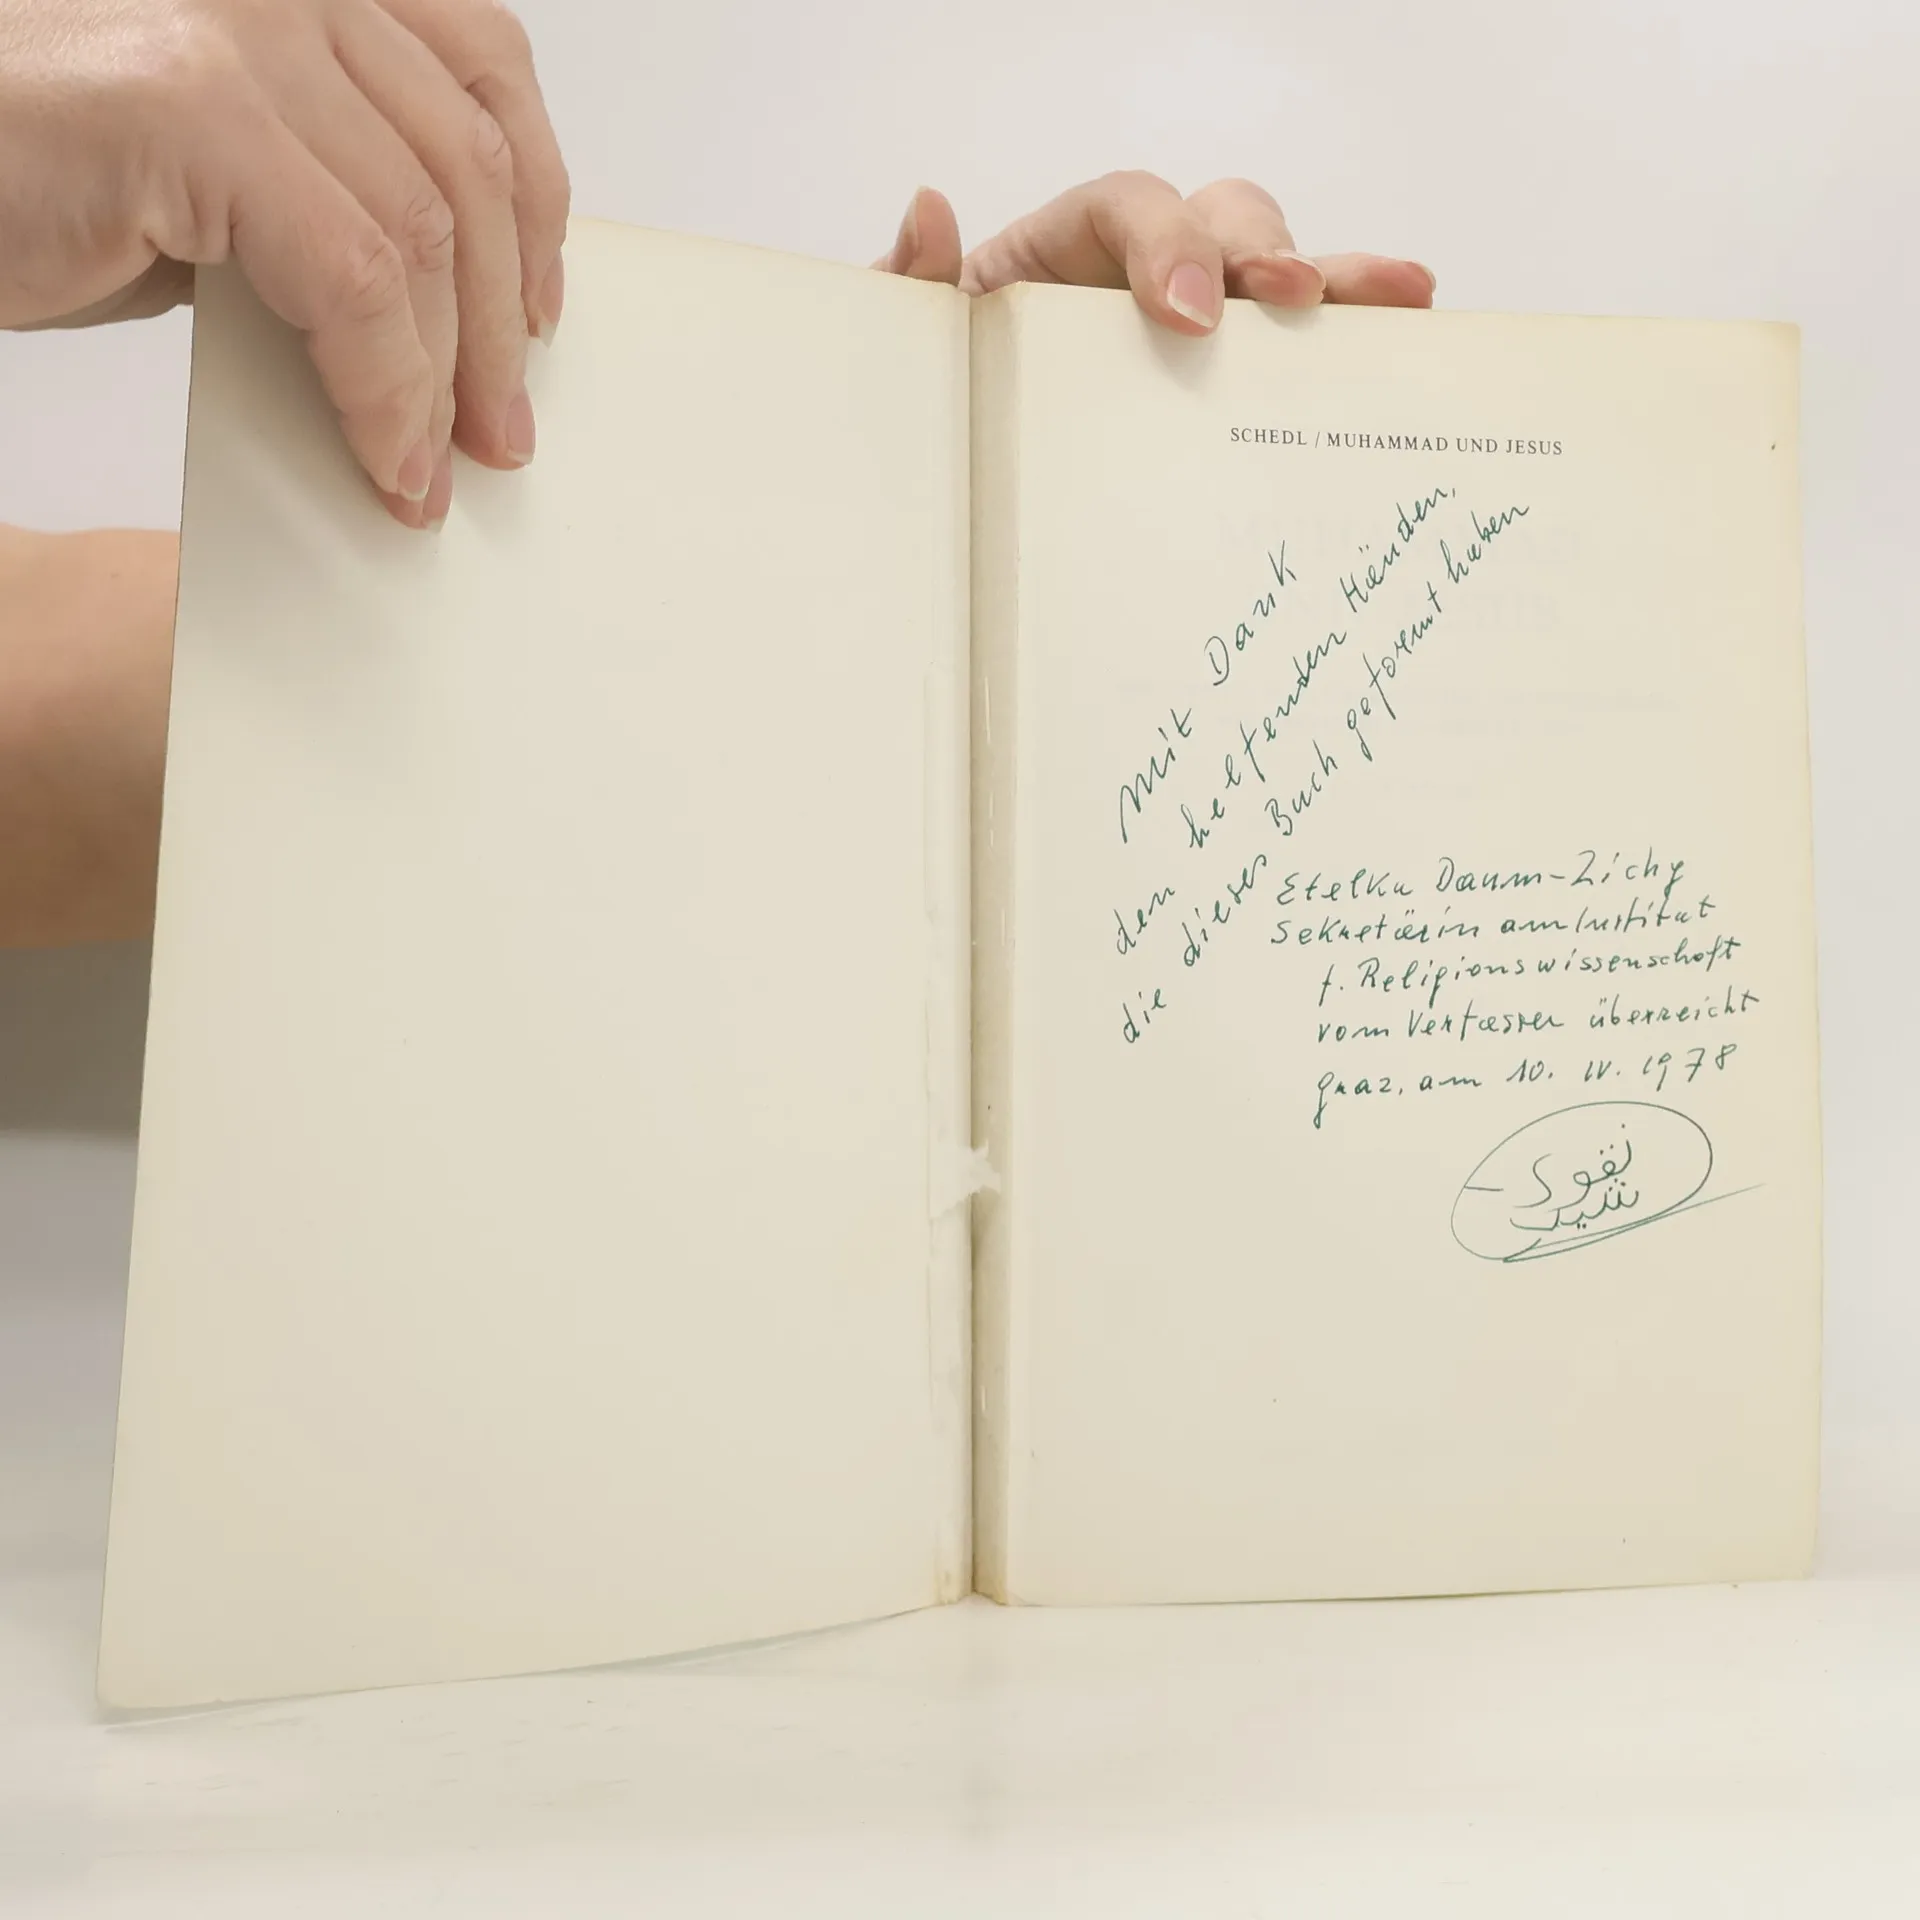 SCHEDL / MUHAMMAD UND JESUS
Mit Dank
den helfenden Händen,
die dieses Buch geformt haben
Etelka Daum-Zichy
Sekretärin am Institut
f. Religionswissenschaft
vom Verfasser überreicht
Graz, am 10. IV. 1978